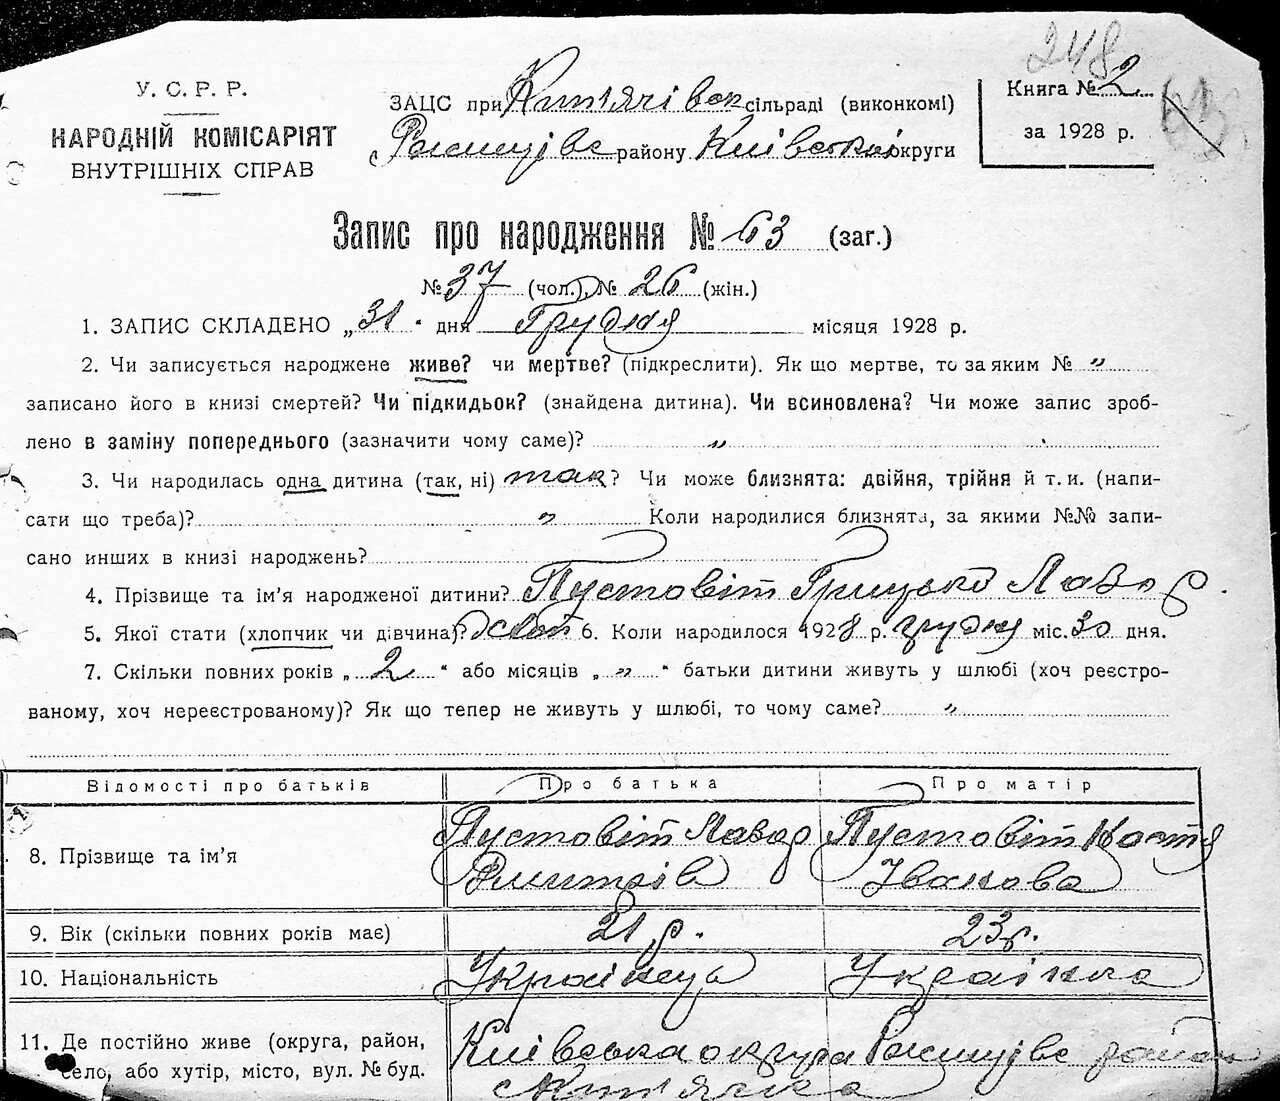 248
У. С. Р. Р.
НАРОДНІЙ КОМІСАРІЯТ
ВНУТРІШНІХ СПРАВ
ЗАЦС при сільраді (виконкомі)
району Київської округи
Книга № 2
за 1928 р.
63
Запис про народження № 63 (заг.)
№ 37 (чол.), № 26 (жін.)
1. ЗАПИС СКЛАДЕНО „31“ дня Грудня місяця 1928 р.
2. Чи записується народжене живе? чи мертве? (підкреслити). Як що мертве, то за яким № „
записано його в книзі смертей? Чи підкидьок? (знайдена дитина). Чи всиновлена? Чи може запис зроб-
лено в заміну попереднього (зазначити чому саме)? „
3. Чи народилась одна дитина (так, ні) так? Чи може близнята: двійня, трійня й т. и. (напи-
сати що треба)? „ Коли народилися близнята, за якими №№ запи-
сано инших в книзі народжень?
4. Прізвище та ім’я народженої дитини? Пустовіт Грицько Лавор.
5. Якої стати (хлопчик чи дівчина)? 6. Коли народилося 1928 р. грудня міс. 30 дня.
7. Скільки повних років „2“ або місяців „ „ “ батьки дитини живуть у шлюбі (хоч реєстро-
ваному, хоч нереєстрованому)? Як що тепер не живуть у шлюбі, то чому саме? „
Відомості про батьків Про батька Про матір
8. Прізвище та ім’я Пустовіт Лавор Пустовіт
Дмитрів Іванова
9. Вік (скільки повних років має) 21 р. 23 р.
10. Національність Українець Українка
11. Де постійно живе (округа, район, Київська округа район
село, або хутір, місто, вул. № буд.